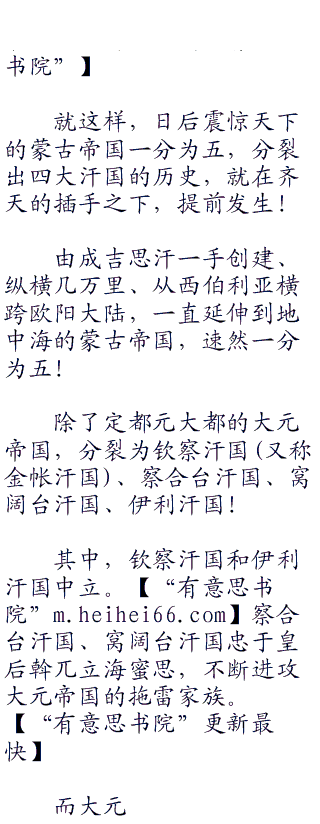 书院”】
就这样，日后震惊天下
的蒙古帝国一分为五，分裂
出四大汗国的历史，就在齐
天的插手之下，提前发生！
由成吉思汗一手创建、
纵横几万里、从西伯利亚横
跨欧阳大陆，一直延伸到地
中海的蒙古帝国，速然一分
为五！
除了定都元大都的大元
帝国，分裂为钦察汗国(又称
金帐汗国)、察合台汗国、窝
阔台汗国、伊利汗国！
其中，钦察汗国和伊利
汗国中立。【“有意思书
院”m.heihei66.com】察合
台汗国、窝阔台汗国忠于皇
后斡兀立海蜜思，不断进攻
大元帝国的拖雷家族。
【“有意思书院”更新最
快】
而大元